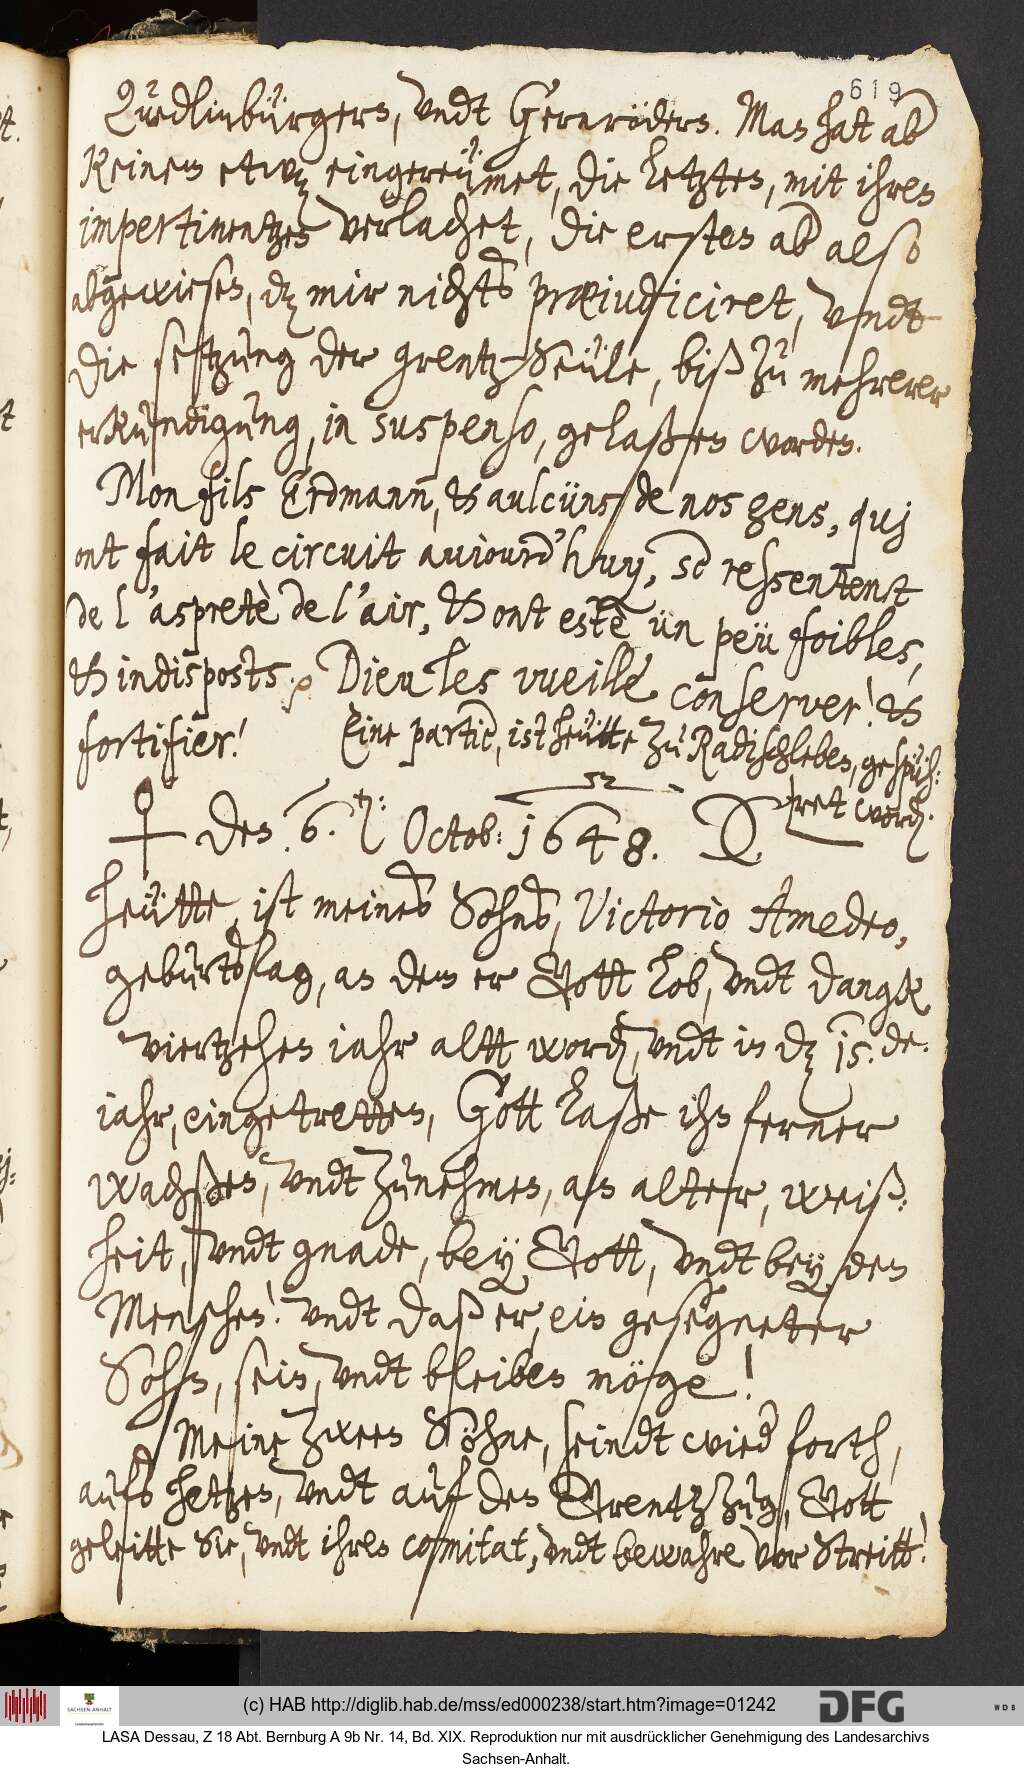 619
Quedlinbürgern, vndt Gernröders. Man hat ab
Keinem etwaß eingereümet, die letzten, mit ihren
impertinentzen verlachet, die ersten ab also
abgewiesen, dz mir nichts præiudiciret, vndt
die setzung der grentz-Seüle, biß zu mehrerer
erkundigung, in suspenso, gelaßen worden.
Mon fils Erdmann, & aulcüns de nos gens, quj
ont fait le circuit auiourd'huy, se ressentent
de l'aspretè de l'air, & ont estè ün peü foibles,
& indisposts. Dieu les vueille conserver! &
fortifier! Eine partie, ist heütte zu Radischleben, gespüh:
ret word.
den 6. Octob: 1648.
heütte, ist meines Sohns, Victorio Amedeo,
geburtstag, an dem er Gott lob, vndt dangk
viertzehen iahr altt word, vndt in dz 15. de.
iahr, eingetretten, Gott laße ihn ferner
wachßen, vndt zunehmen, an alter, weiß:
heit, vndt gnade, bey Gott, vndt bey den
Menschen! vndt daß er, ein gesegneter
Sohn, sein, vndt bleiben möge!
Meine zween Söhne, seindt wied forth,
aufs hetzen, vndt auf den Grentzzug, Gott
geleitte Sie, vndt ihren comitat, vndt bewahre vor Streitt!
SACHSEN-ANHALT
(c) HAB http://diglib.hab.de/mss/ed000238/start.htm?image=01242
DFG
WDB
LASA Dessau, Z 18 Abt. Bernburg A 9b Nr. 14, Bd. XIX. Reproduktion nur mit ausdrücklicher Genehmigung des Landesarchivs
Sachsen-Anhalt.